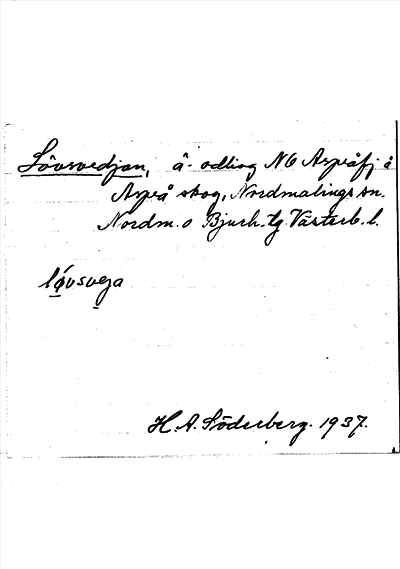 Lövsvedjan, å. odling NO Aspåfj å
Aspå skog, Nordmalings sn.
Nordm. o Bjurh. tg. Västerb. l.
lóvsveja
H. A. Söderberg. 1937.